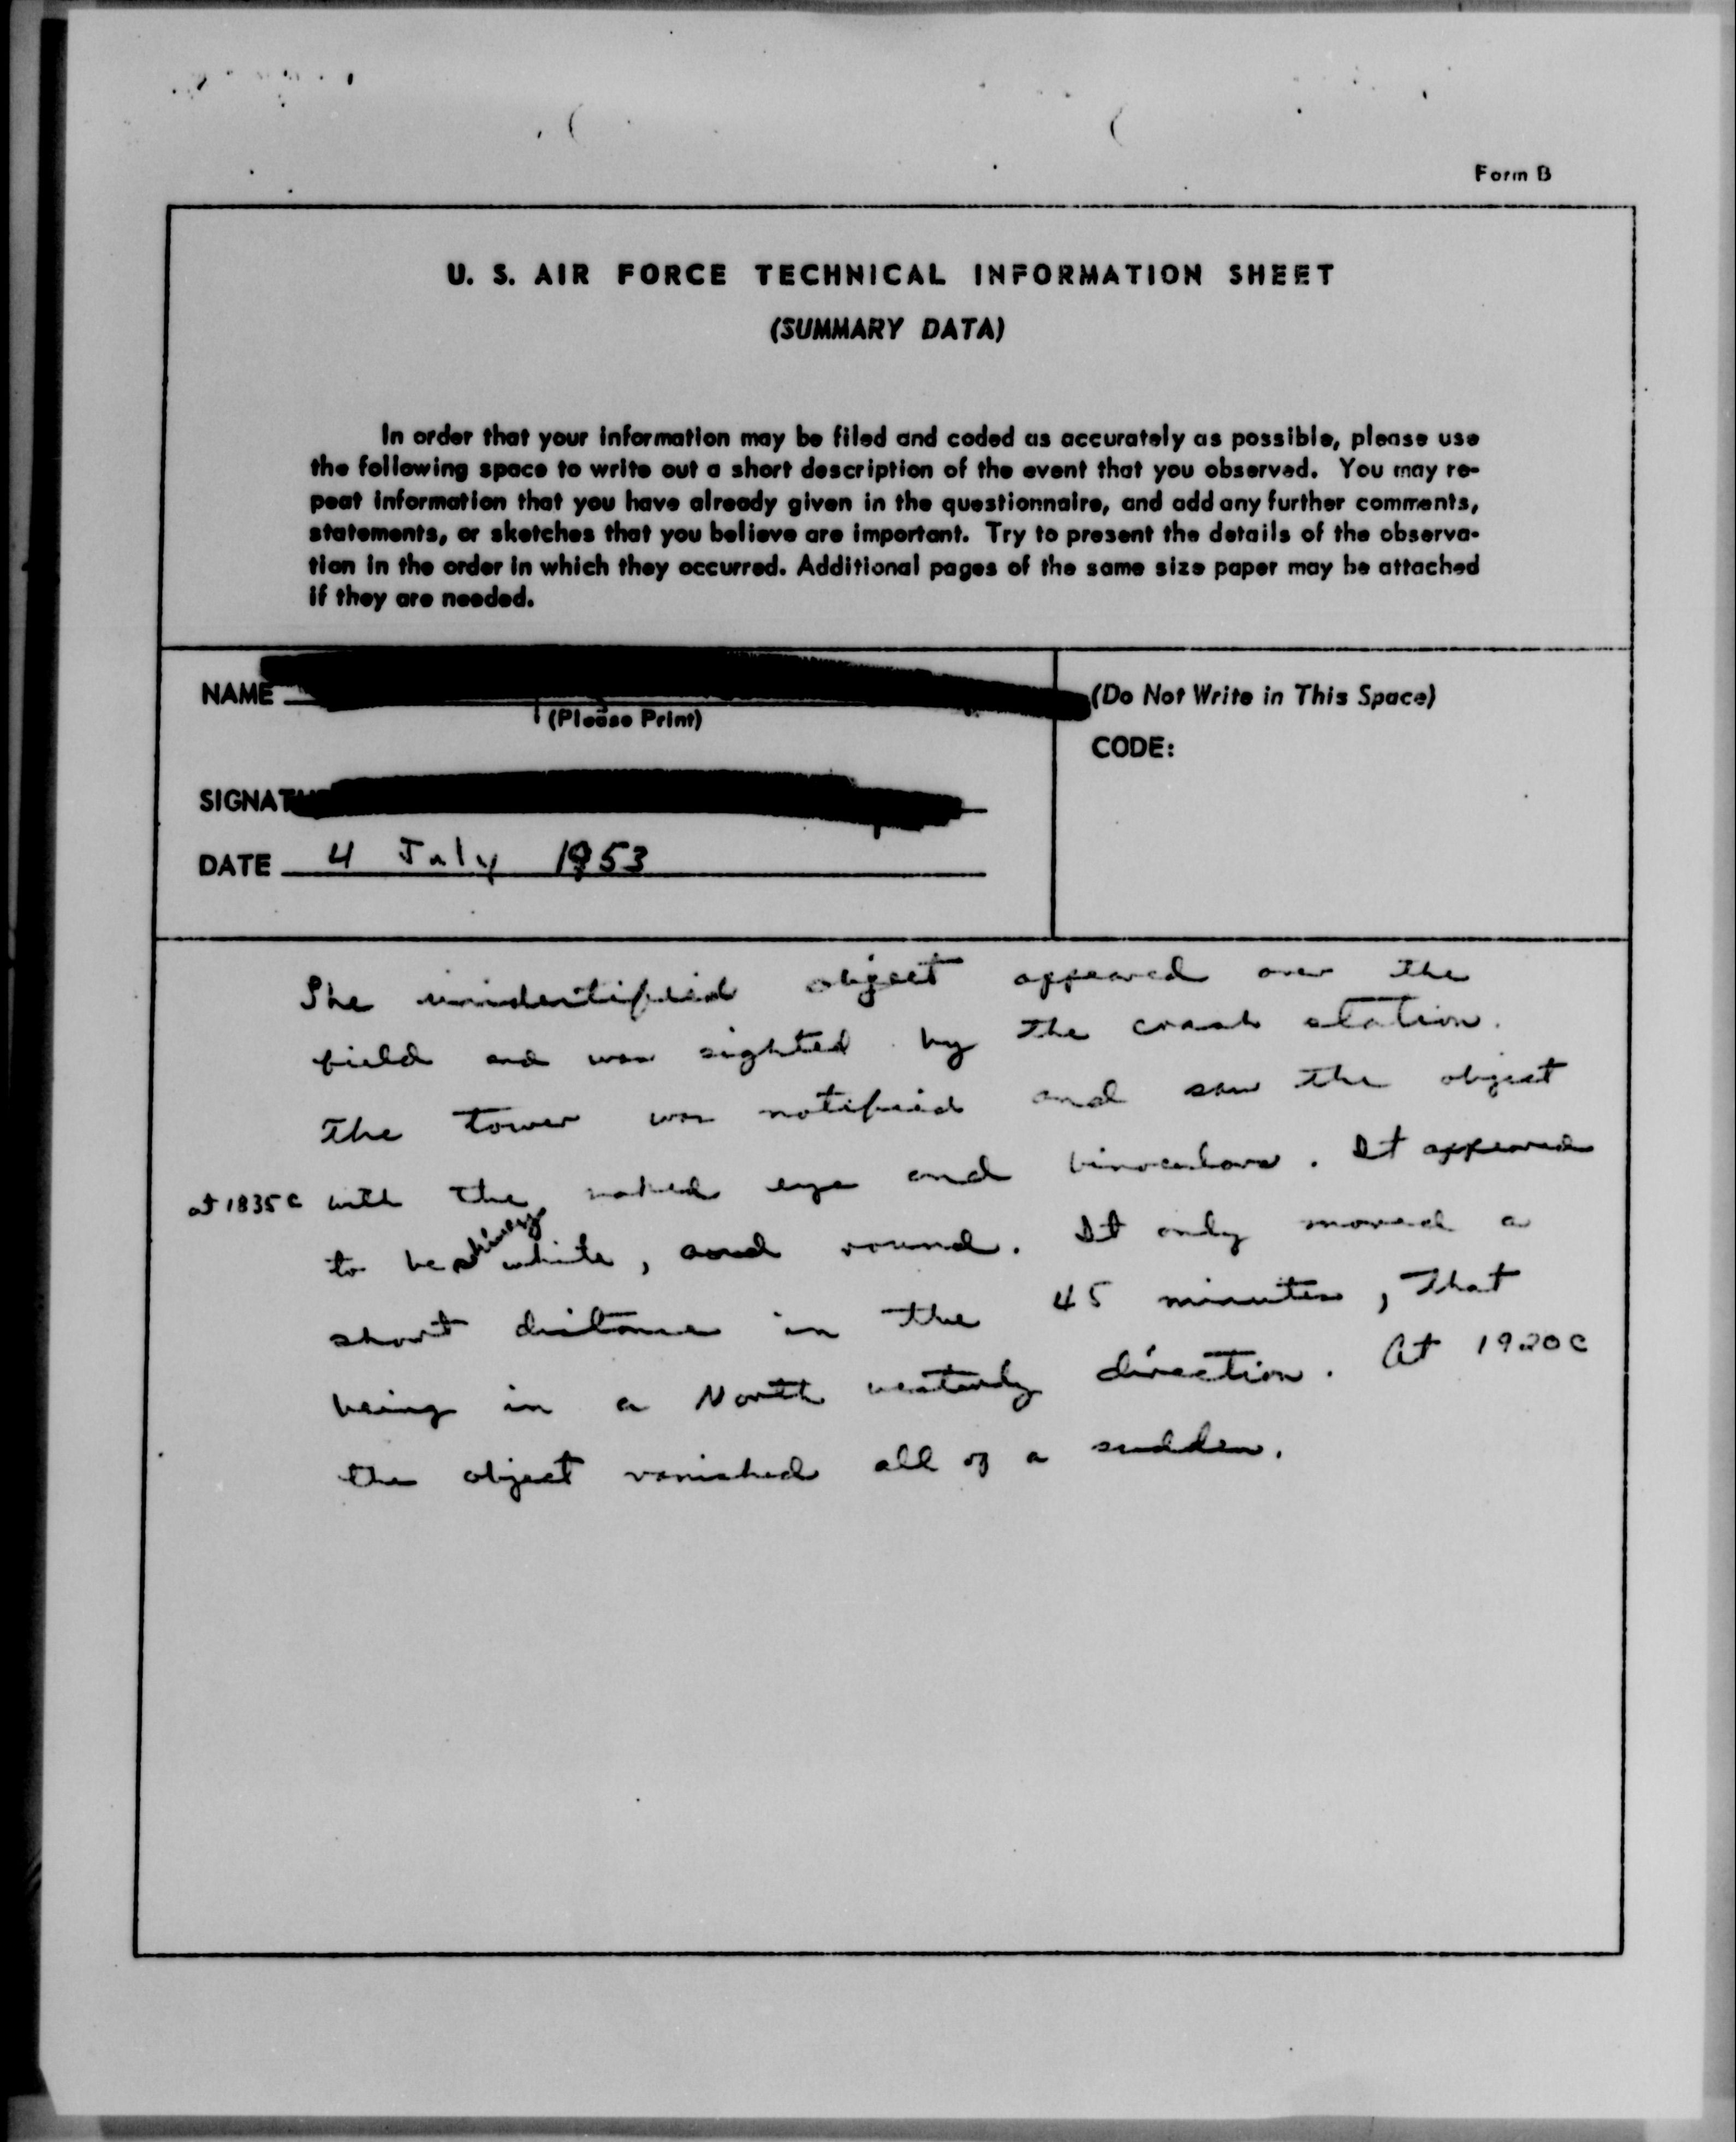 Form B
U. S. AIR FORCE TECHNICAL INFORMATION SHEET
(SUMMARY DATA)
In order that your information may be filed and coded as accurately as possible, please use
the following space to write out a short description of the event that you observed. You may re-
peat information that you have already given in the questionnaire, and add any further comments,
statements, or sketches that you believe are important. Try to present the details of the observa-
tion in the order in which they occurred. Additional pages of the same size paper may be attached
if they are needed.
NAME
(Please Print)
(Do Not Write in This Space)
CODE:
SIGNAT
DATE 4 July 1953
The unidentified object appeared over the
field and was sighted by the crash station.
The tower was notified and saw the object
at 1835 C with the naked eye and binoculars. It appeared
to be shiney white, and round. It only moved a
short distance in the 45 minutes, that
being in a North westerly direction. At 1920 C
the object vanished all of a sudden.